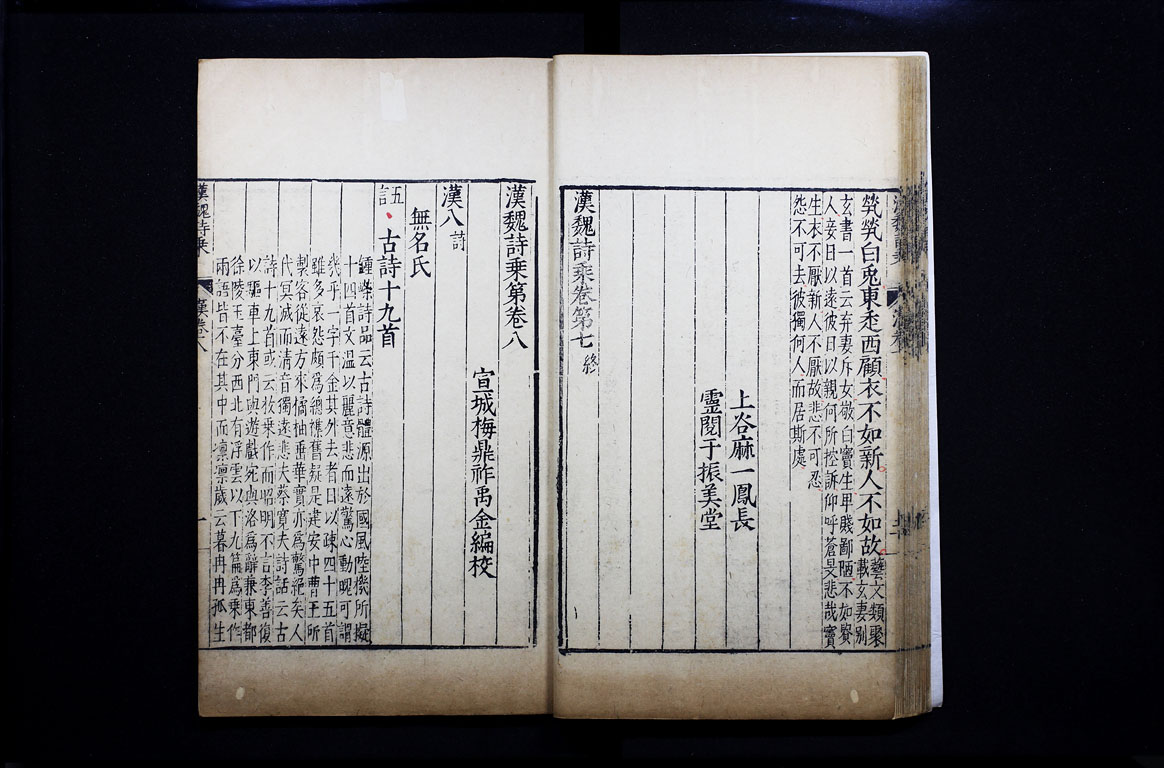 煢煢白兎東走西顧衣不如新人不如故
藝文類聚
載玄妻別
玄書一首云弃妻斥女敬白竇生卑賤鄙陋不如貴
人妾日以遠彼日以親何所控訴仰呼蒼旻悲哉竇
生衣不厭新人不厭故悲不可忍
怨不可去彼獨何人而居斯處
上谷麻一鳳長
靈閱于振美堂
漢魏詩乘卷第七終
漢魏詩乗第卷八
宣城梅鼎祚禹金編校
漢八詩
無名氏
五言
古詩十九首
鍾嶸詩品云古詩體源出於國風陸機所擬
十四首文温以麗意悲而遠驚心動魄可謂
幾乎一字千金其外去者日以疎四十五首
雖多哀怨頗爲總襍舊疑是建安中曹王所
製客從遠方來橘柚垂華實亦爲驚絕矣人
代冥滅而清音獨遠悲夫蔡寬夫詩話云古
詩十九首或云枚乗作而昭明不言李善復
以驅車上東門與遊戲宛與洛爲辭兼東都
徐陵玉臺分西北有浮雲以下九篇爲乗作
兩語皆不在其中而凛凛歲云暮冉冉孤生
漢魏詩乗
漢卷八
一